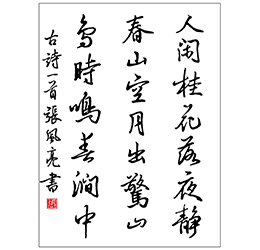 人闲桂花落夜静
春山空月出驚山
鸟時鳴春澗中
古诗一首張風亮書